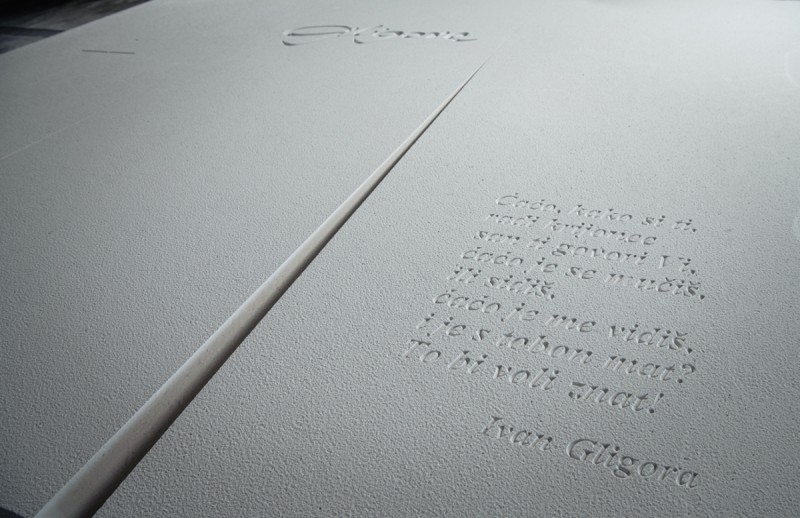 Ćaćo, kako si ti,
radi krijonce
san ti govori Vi,
ćaćo je se mučiš,
ili sidiš,
ćaćo je me vidiš,
i je s tobon mat?
To bi voli znat!
Ivan Gligora